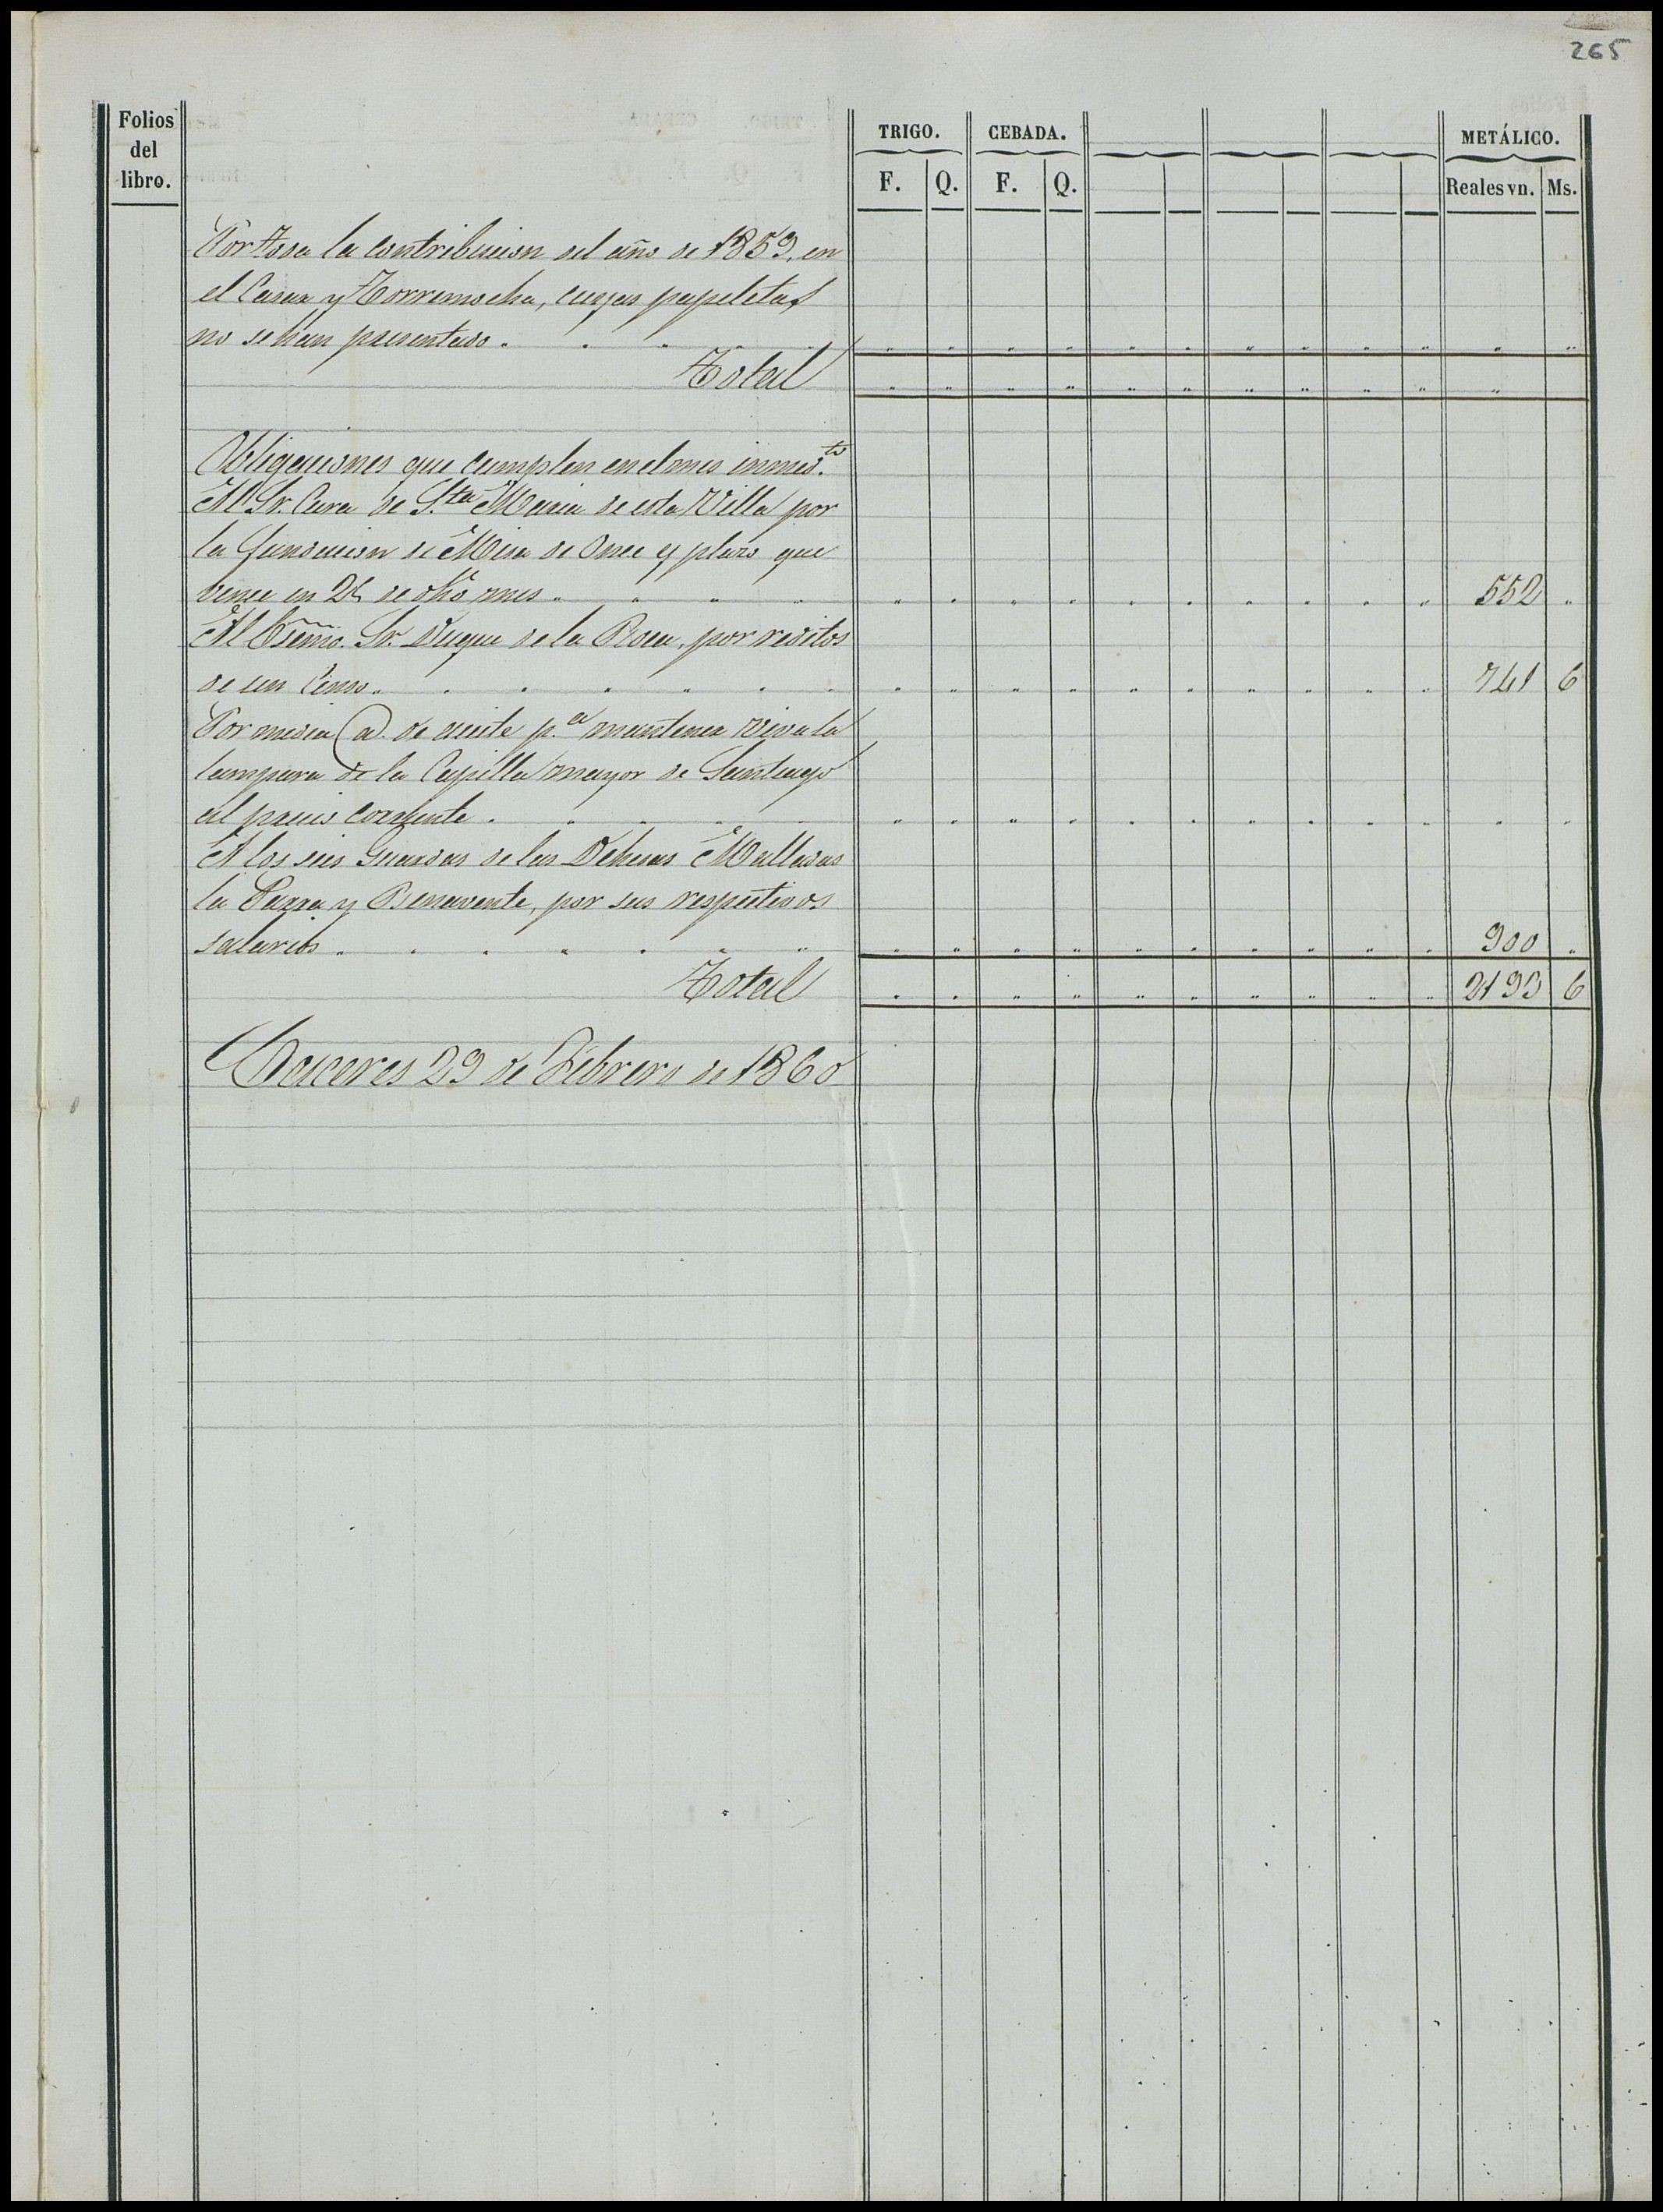 265
Folios del libro.
TRIGO. CEBADA. METÁLICO.
F. Q. F. Q. Reales vn. Ms.
Por toda la contribucion del año de 1859, en
el Casar y Torremocha, cuyas papeletas
no se han presentado
Total
Obligaciones que cumplen en el mes inmed.to
Al Sr. Cura de S.ta Maria de esta Villa por
la fundacion de Misa de Once y plazo que
vence en de dho mes 552
Al Esemo. Sr. Duque de la Roca, por reditos
de un Censo 741 6
Por media @. de aceite p.a mantener viva la
lampara de la Capilla mayor de Santiago
al precio corriente
A los seis Guardas de las Dehesas Malladas
la Parra y Benavente, por sus respectivos
salarios 900
Total 2193 6
Caceres 29 de Febrero de 1860